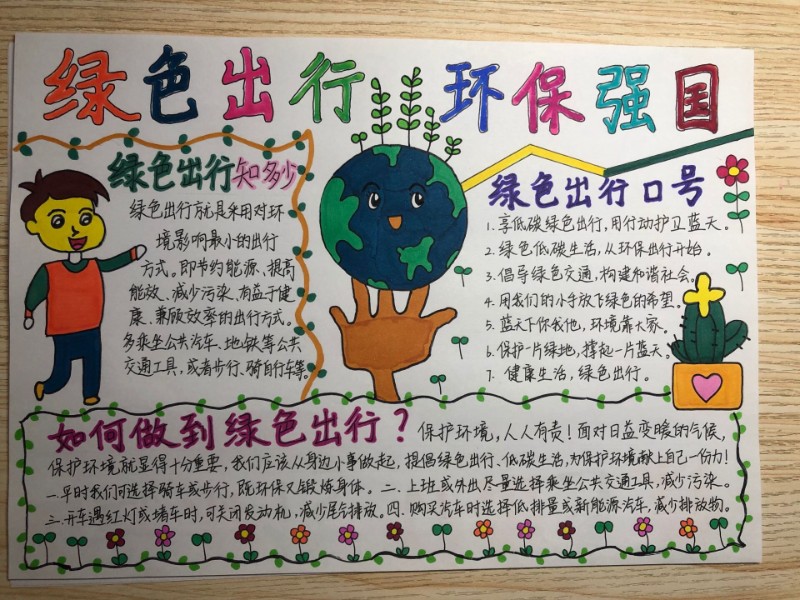 绿色出行 环保强国
绿色出行知多少
绿色出行就是采用对环
境影响最小的出行
方式。即节约能源、提高
能效、减少污染、有益于健
康、兼顾效率的出行方式。
多乘坐公共汽车、地铁等公共
交通工具,或者步行、骑自行车等。
绿色出行口号
1. 享低碳绿色出行,用行动护卫蓝天。
2. 绿色低碳生活,从环保出行开始。
3. 倡导绿色交通,构建和谐社会。
4. 用我们的小手放飞绿色的希望。
5. 蓝天下你我他,环境靠大家。
6. 保护一片绿地,撑起一片蓝天。
7. 健康生活,绿色出行。
如何做到绿色出行?保护环境,人人有责!面对日益变暖的气候,
保护环境就显得十分重要,我们应该从身边小事做起,提倡绿色出行、低碳生活,为保护环境献上自己一份力!
一.平时我们可选择骑车或步行,既环保又锻炼身体。二.上班或外出尽量选择乘坐公共交通工具,减少污染。
三.开车遇红灯或堵车时,可关闭发动机,减少尾气排放。四.购买汽车时选择低排量或新能源汽车,减少排放物。